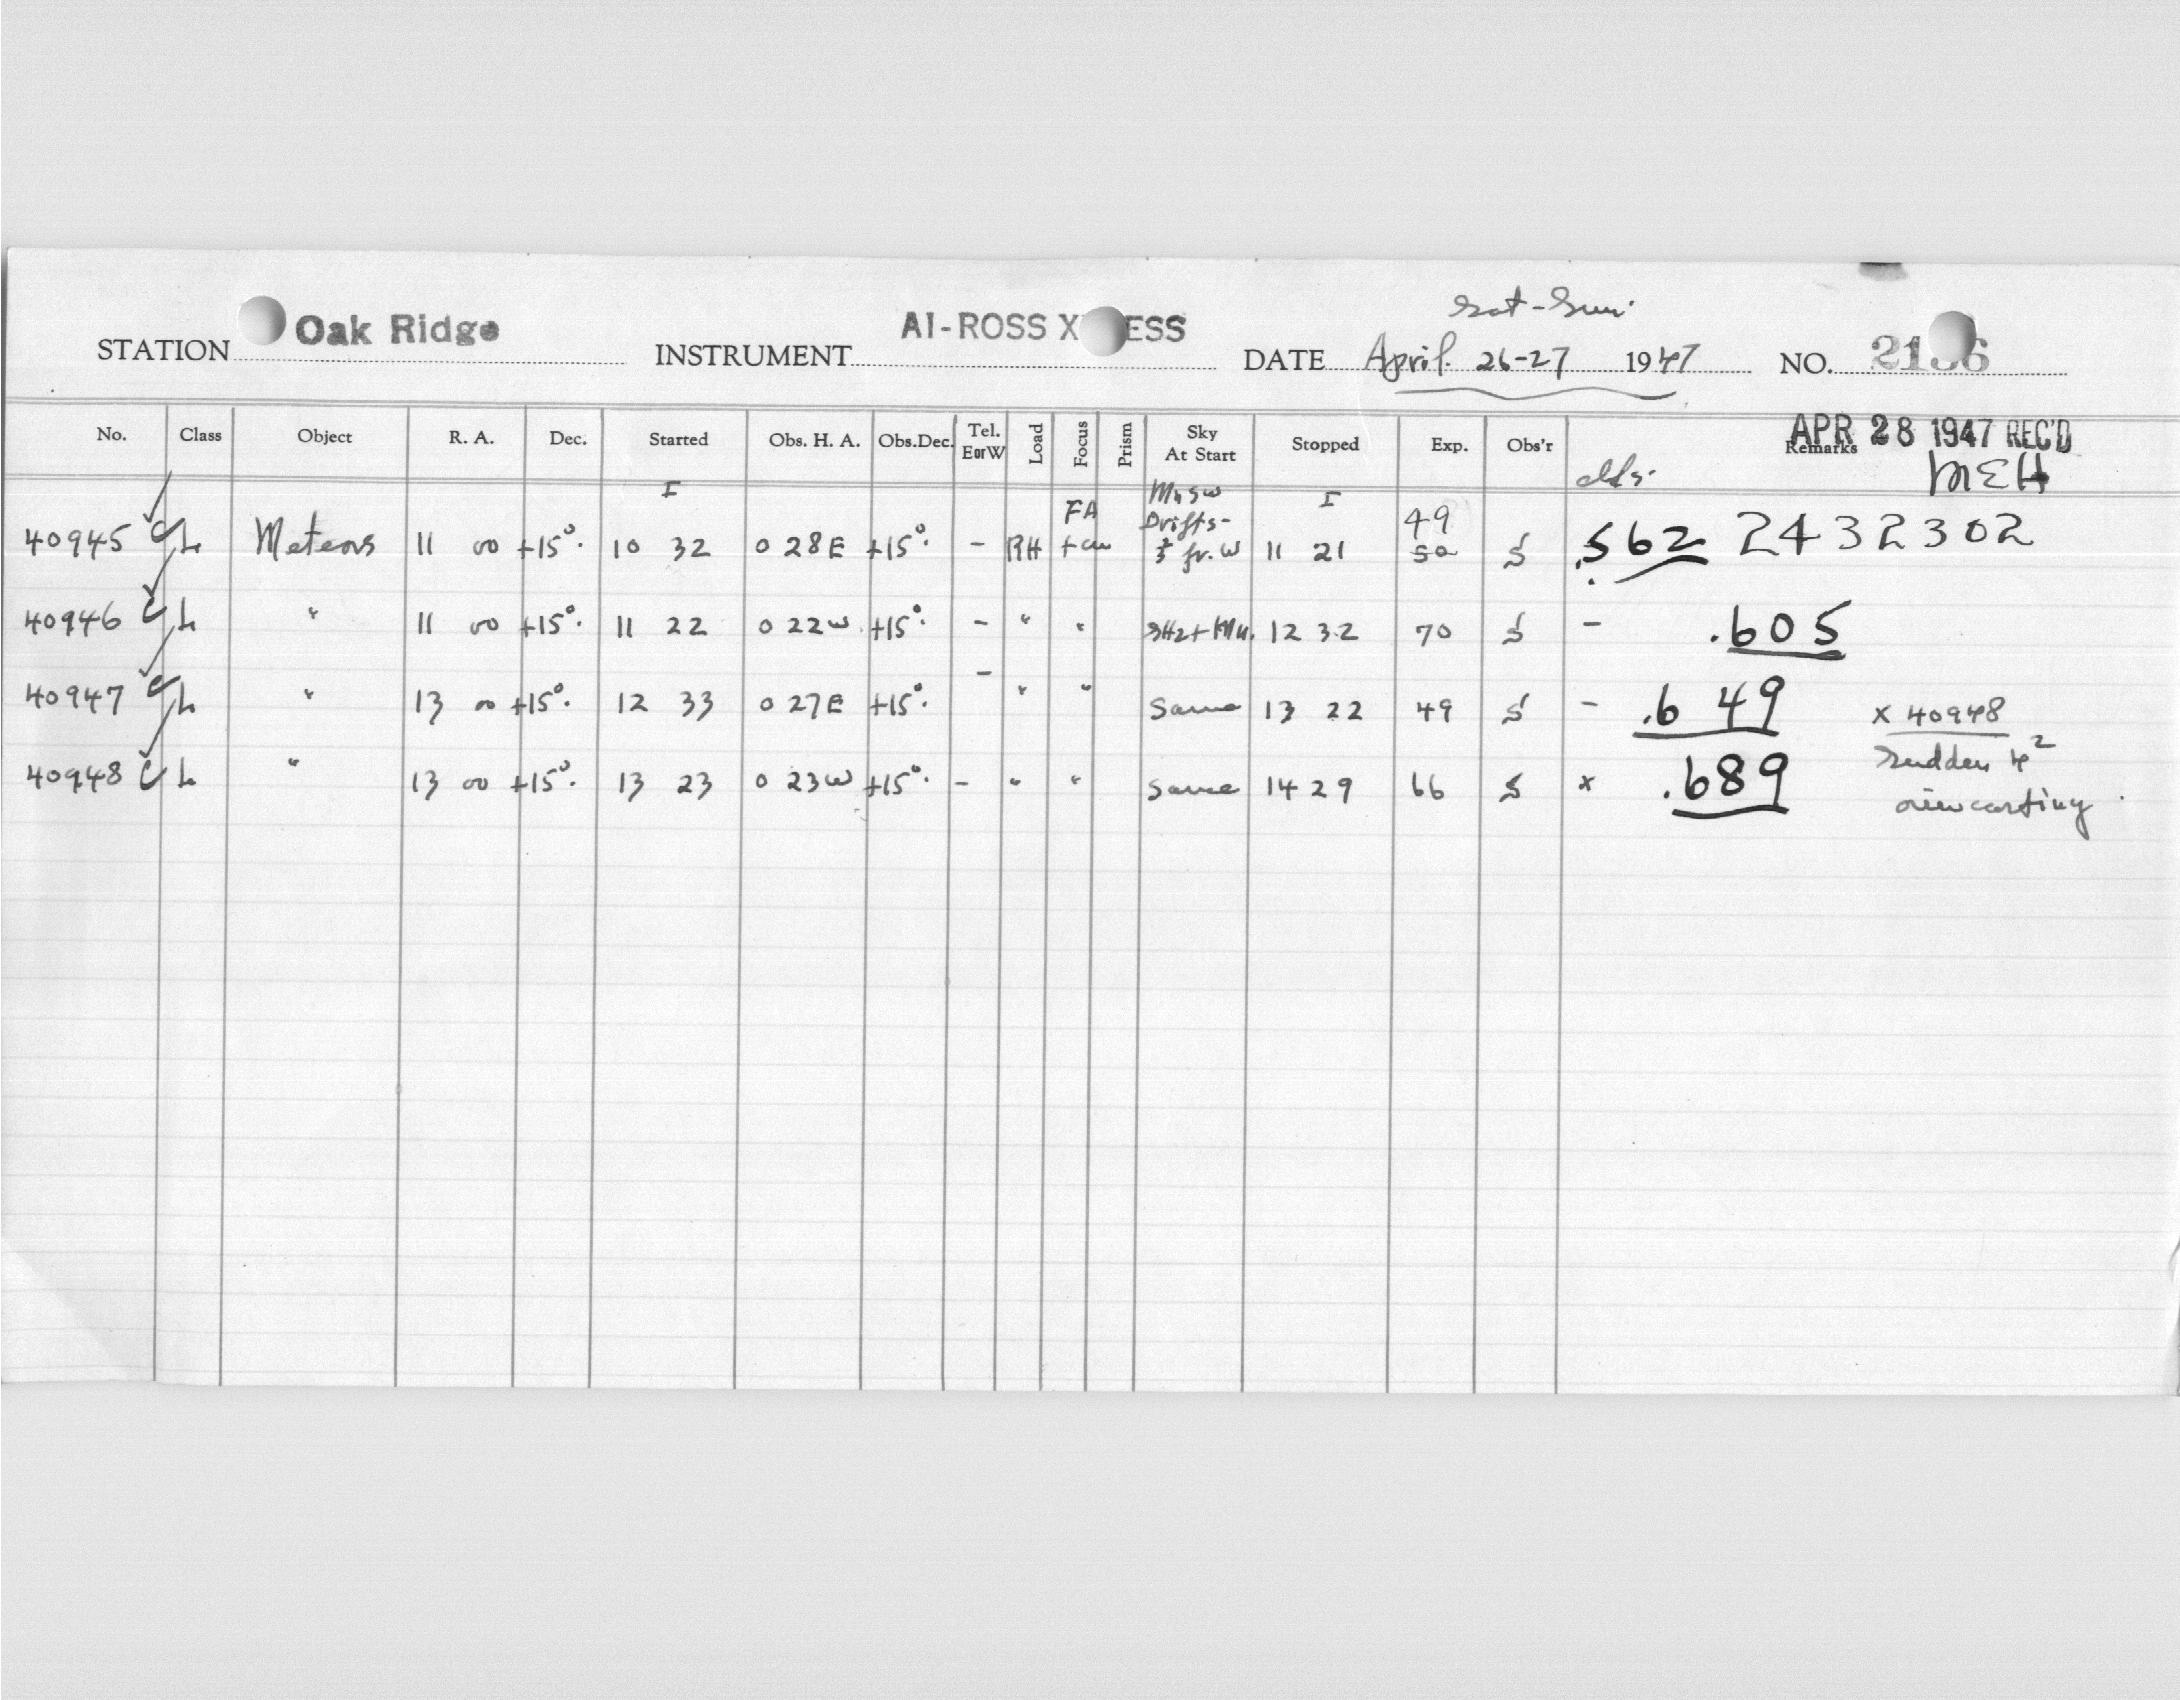 Sat-Sun.
STATION Oak Ridge INSTRUMENT AI-ROSS X ESS DATE April. 26-27 1947 NO. 21 6
No. Class Object R. A. Dec. Started Obs. H. A. Obs.Dec. Tel. EorW Load Focus Prism Sky At Start Stopped Exp. Obs'r Remarks
APR 28 1947 REC'D
MEH
clds.
40945 C L Meteors 11 00 +15°. I 10 32 0 28E +15°. - RH FA Mn SW Drifts- fr. W I 11 21 49 50 S .562 2432302
40946 C L " 11 00 +15°. 11 22 0 22W +15°. - " " 12 32 70 S - .605
40947 C L " 13 00 +15°. 12 33 0 27E +15°. - " " Same 13 22 49 S - .649 x 40948
40948 C L " 13 00 +15°. 13 23 0 23W +15°. - " " Same 14 29 66 S x .689 Sudden
overcasting.